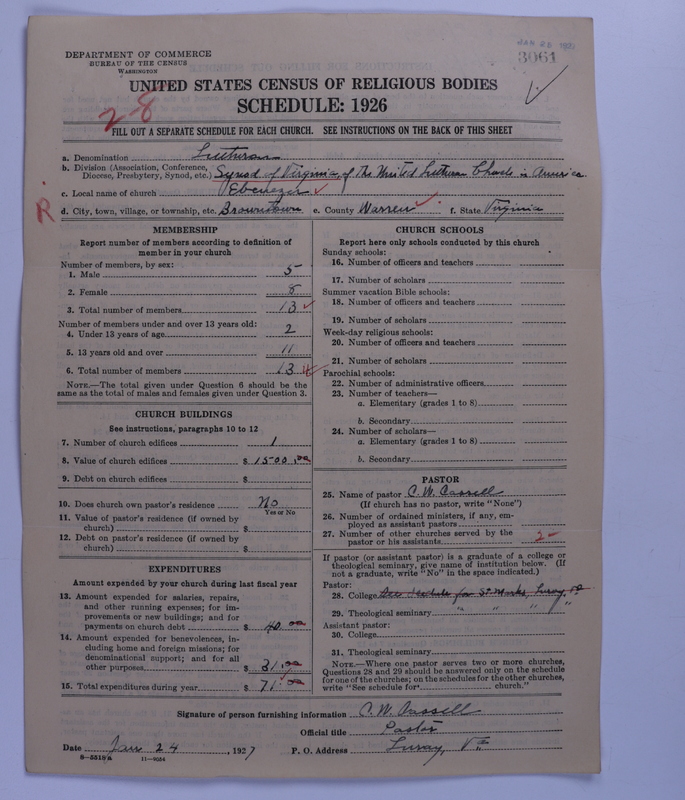 JAN 26 1927
3061
DEPARTMENT OF COMMERCE
BUREAU OF THE CENSUS
WASHINGTON
UNITED STATES CENSUS OF RELIGIOUS BODIES
SCHEDULE: 1926
2-8
FILL OUT A SEPARATE SCHEDULE FOR EACH CHURCH. SEE INSTRUCTIONS ON THE BACK OF THIS SHEET
a. Denomination Lutheran
b. Division (Association, Conference, Diocese, Presbytery, Synod, etc.) Synod of Virginia, of the United Lutheran Church in America
c. Local name of church Ebenezer
R
d. City, town, village, or township, etc. Browntown e. County Warren f. State Virginia
MEMBERSHIP
Report number of members according to definition of
member in your church
Number of members, by sex:
1. Male 5
2. Female 8
3. Total number of members 13
Number of members under and over 13 years old:
4. Under 13 years of age 2
5. 13 years old and over 11
6. Total number of members 13
NOTE.—The total given under Question 6 should be the
same as the total of males and females given under Question 3.
CHURCH BUILDINGS
See instructions, paragraphs 10 to 12
7. Number of church edifices 1
8. Value of church edifices $ 1500.00
9. Debt on church edifices $
10. Does church own pastor's residence No
Yes or No
11. Value of pastor's residence (if owned by
church) $
12. Debt on pastor's residence (if owned by
church) $
EXPENDITURES
Amount expended by your church during last fiscal year
13. Amount expended for salaries, repairs,
and other running expenses; for im-
provements or new buildings; and for
payments on church debt $ 40.00
14. Amount expended for benevolences, in-
cluding home and foreign missions; for
denominational support; and for all
other purposes $ 31.00
15. Total expenditures during year $ 71.00
CHURCH SCHOOLS
Report here only schools conducted by this church
Sunday schools:
16. Number of officers and teachers
17. Number of scholars
Summer vacation Bible schools:
18. Number of officers and teachers
19. Number of scholars
Week-day religious schools:
20. Number of officers and teachers
21. Number of scholars
Parochial schools:
22. Number of administrative officers
23. Number of teachers—
a. Elementary (grades 1 to 8)
b. Secondary
24. Number of scholars—
a. Elementary (grades 1 to 8)
b. Secondary
PASTOR
25. Name of pastor C. W. Cassell
(If church has no pastor, write "None")
26. Number of ordained ministers, if any, em-
ployed as assistant pastors
27. Number of other churches served by the
pastor or his assistants 2-
If pastor (or assistant pastor) is a graduate of a college or
theological seminary, give name of institution below. (If
not a graduate, write "No" in the space indicated.)
Pastor:
28. College See Schedule for St. Marks, Luray, Va
29. Theological seminary " " " "
Assistant pastor:
30. College
31. Theological seminary
NOTE.—Where one pastor serves two or more churches,
Questions 28 and 29 should be answered only on the schedule
for one of the churches; on the schedules for the other churches,
write "See schedule for church."
Signature of person furnishing information C. W. Cassell
Official title Pastor
Date Jan 24, 1927 P. O. Address Luray, Va
8-3318a 11-9034